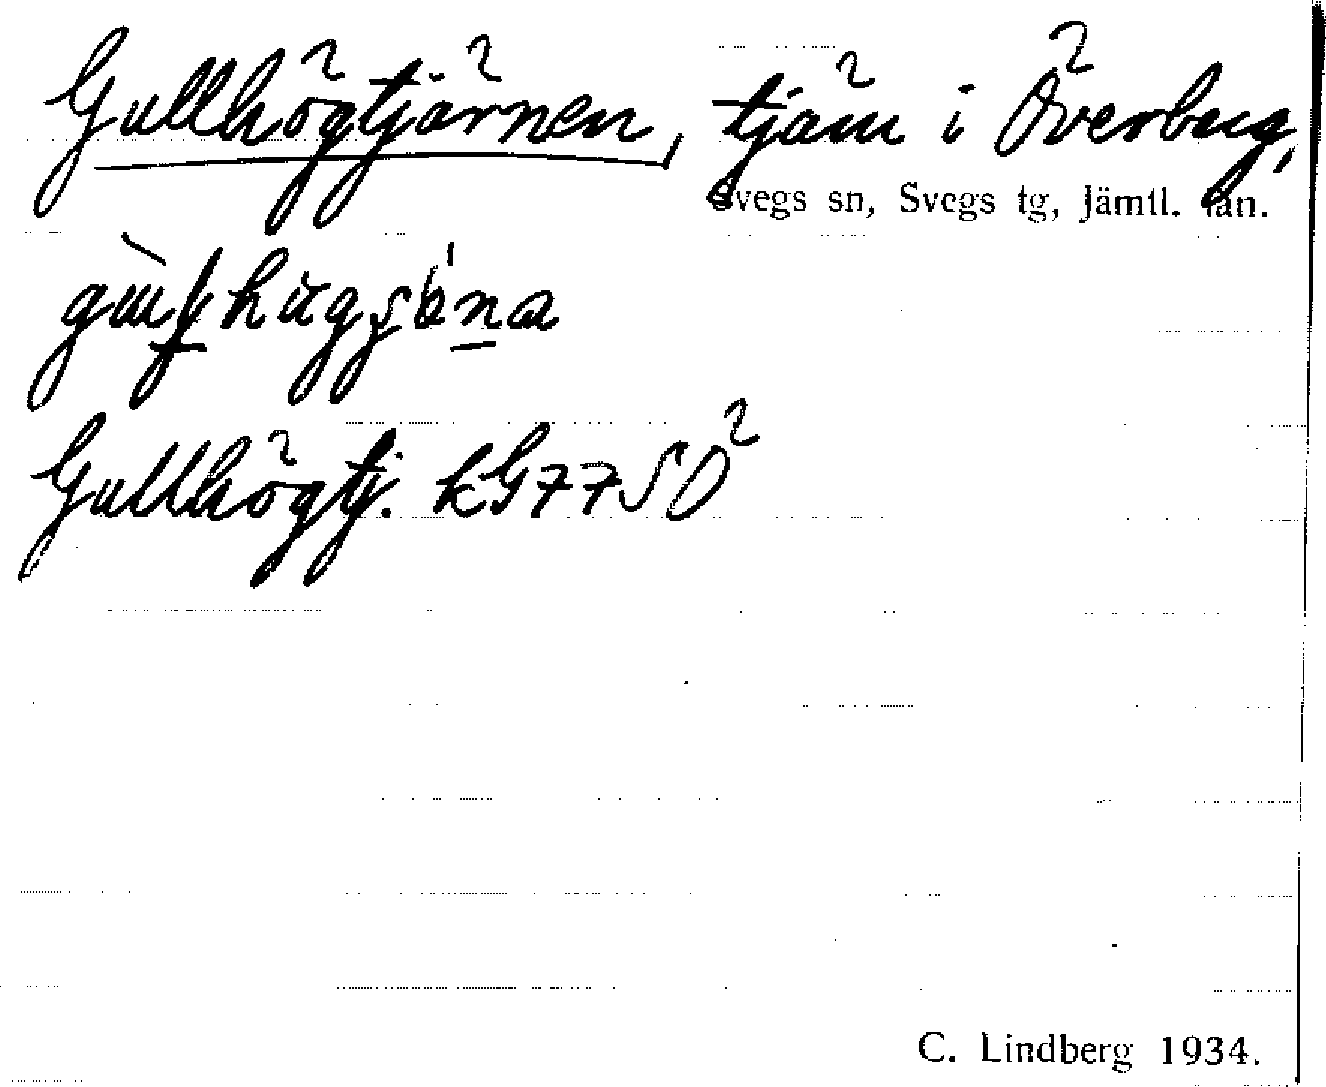 Gullhögtjärnen, tjärn i Överberg,
Svegs sn, Svegs tg, Jämtl. län.
Gullhögtj. kG77SO
C. Lindberg 1934.